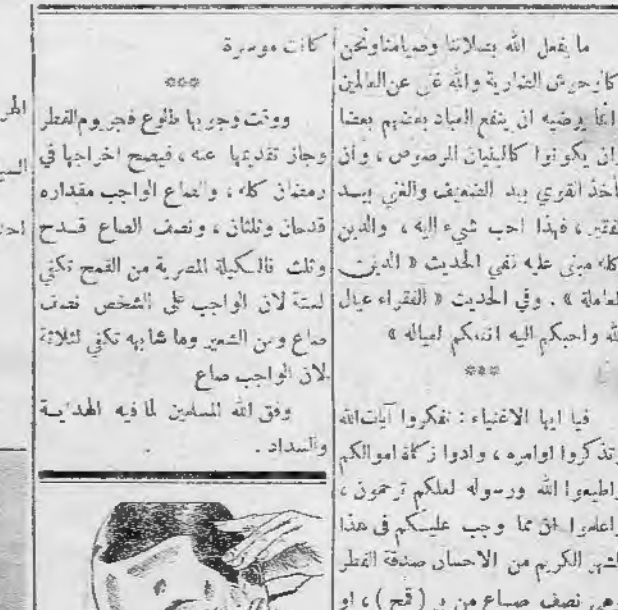 ما يفعل الله بصلاتنا وصيامنا ونحن
كالوحوش الضارية والله غني عن العالمين
انما يرضيه ان ينفع العباد بعضهم بعضا
وان يكونوا كالبنيان المرصوص ، وأن
يأخذ القوي بيد الضعيف والغني بيد
الفقير ، فهذا احب شيء اليه ، والدين
كله مبني عليه ففي الحديث « الدين
المعاملة » . وفي الحديث « الفقراء عيال
الله واحبكم اليه انفعكم لعياله »
***
فيا ايها الاغنياء : تفكروا آيات الله
وتذكروا اوامره ، وادوا زكاة اموالكم
واطيعوا الله ورسوله لعلكم ترحمون ،
واعلموا ان مما وجب عليكم في هذا
الشهر الكريم من الاحسان صدقة الفطر
وهي نصف صاع من بر ( قمح ) ، او
كانت موسرة
***
ووقت وجوبها طلوع فجر يوم الفطر
وجاز تقديمها عنه ، فيصح اخراجها في
رمضان كله ، والصاع الواجب مقداره
قدحان وثلثان ، ونصف الصاع قدح
وثلث فالكيلة المصرية من القمح تكفي
لستة لان الواجب على الشخص نصف
صاع ومن الشعير وما شابهه تكفي لثلاثة
لان الواجب صاع
وفق الله المسلمين لما فيه الهداية
والسداد .